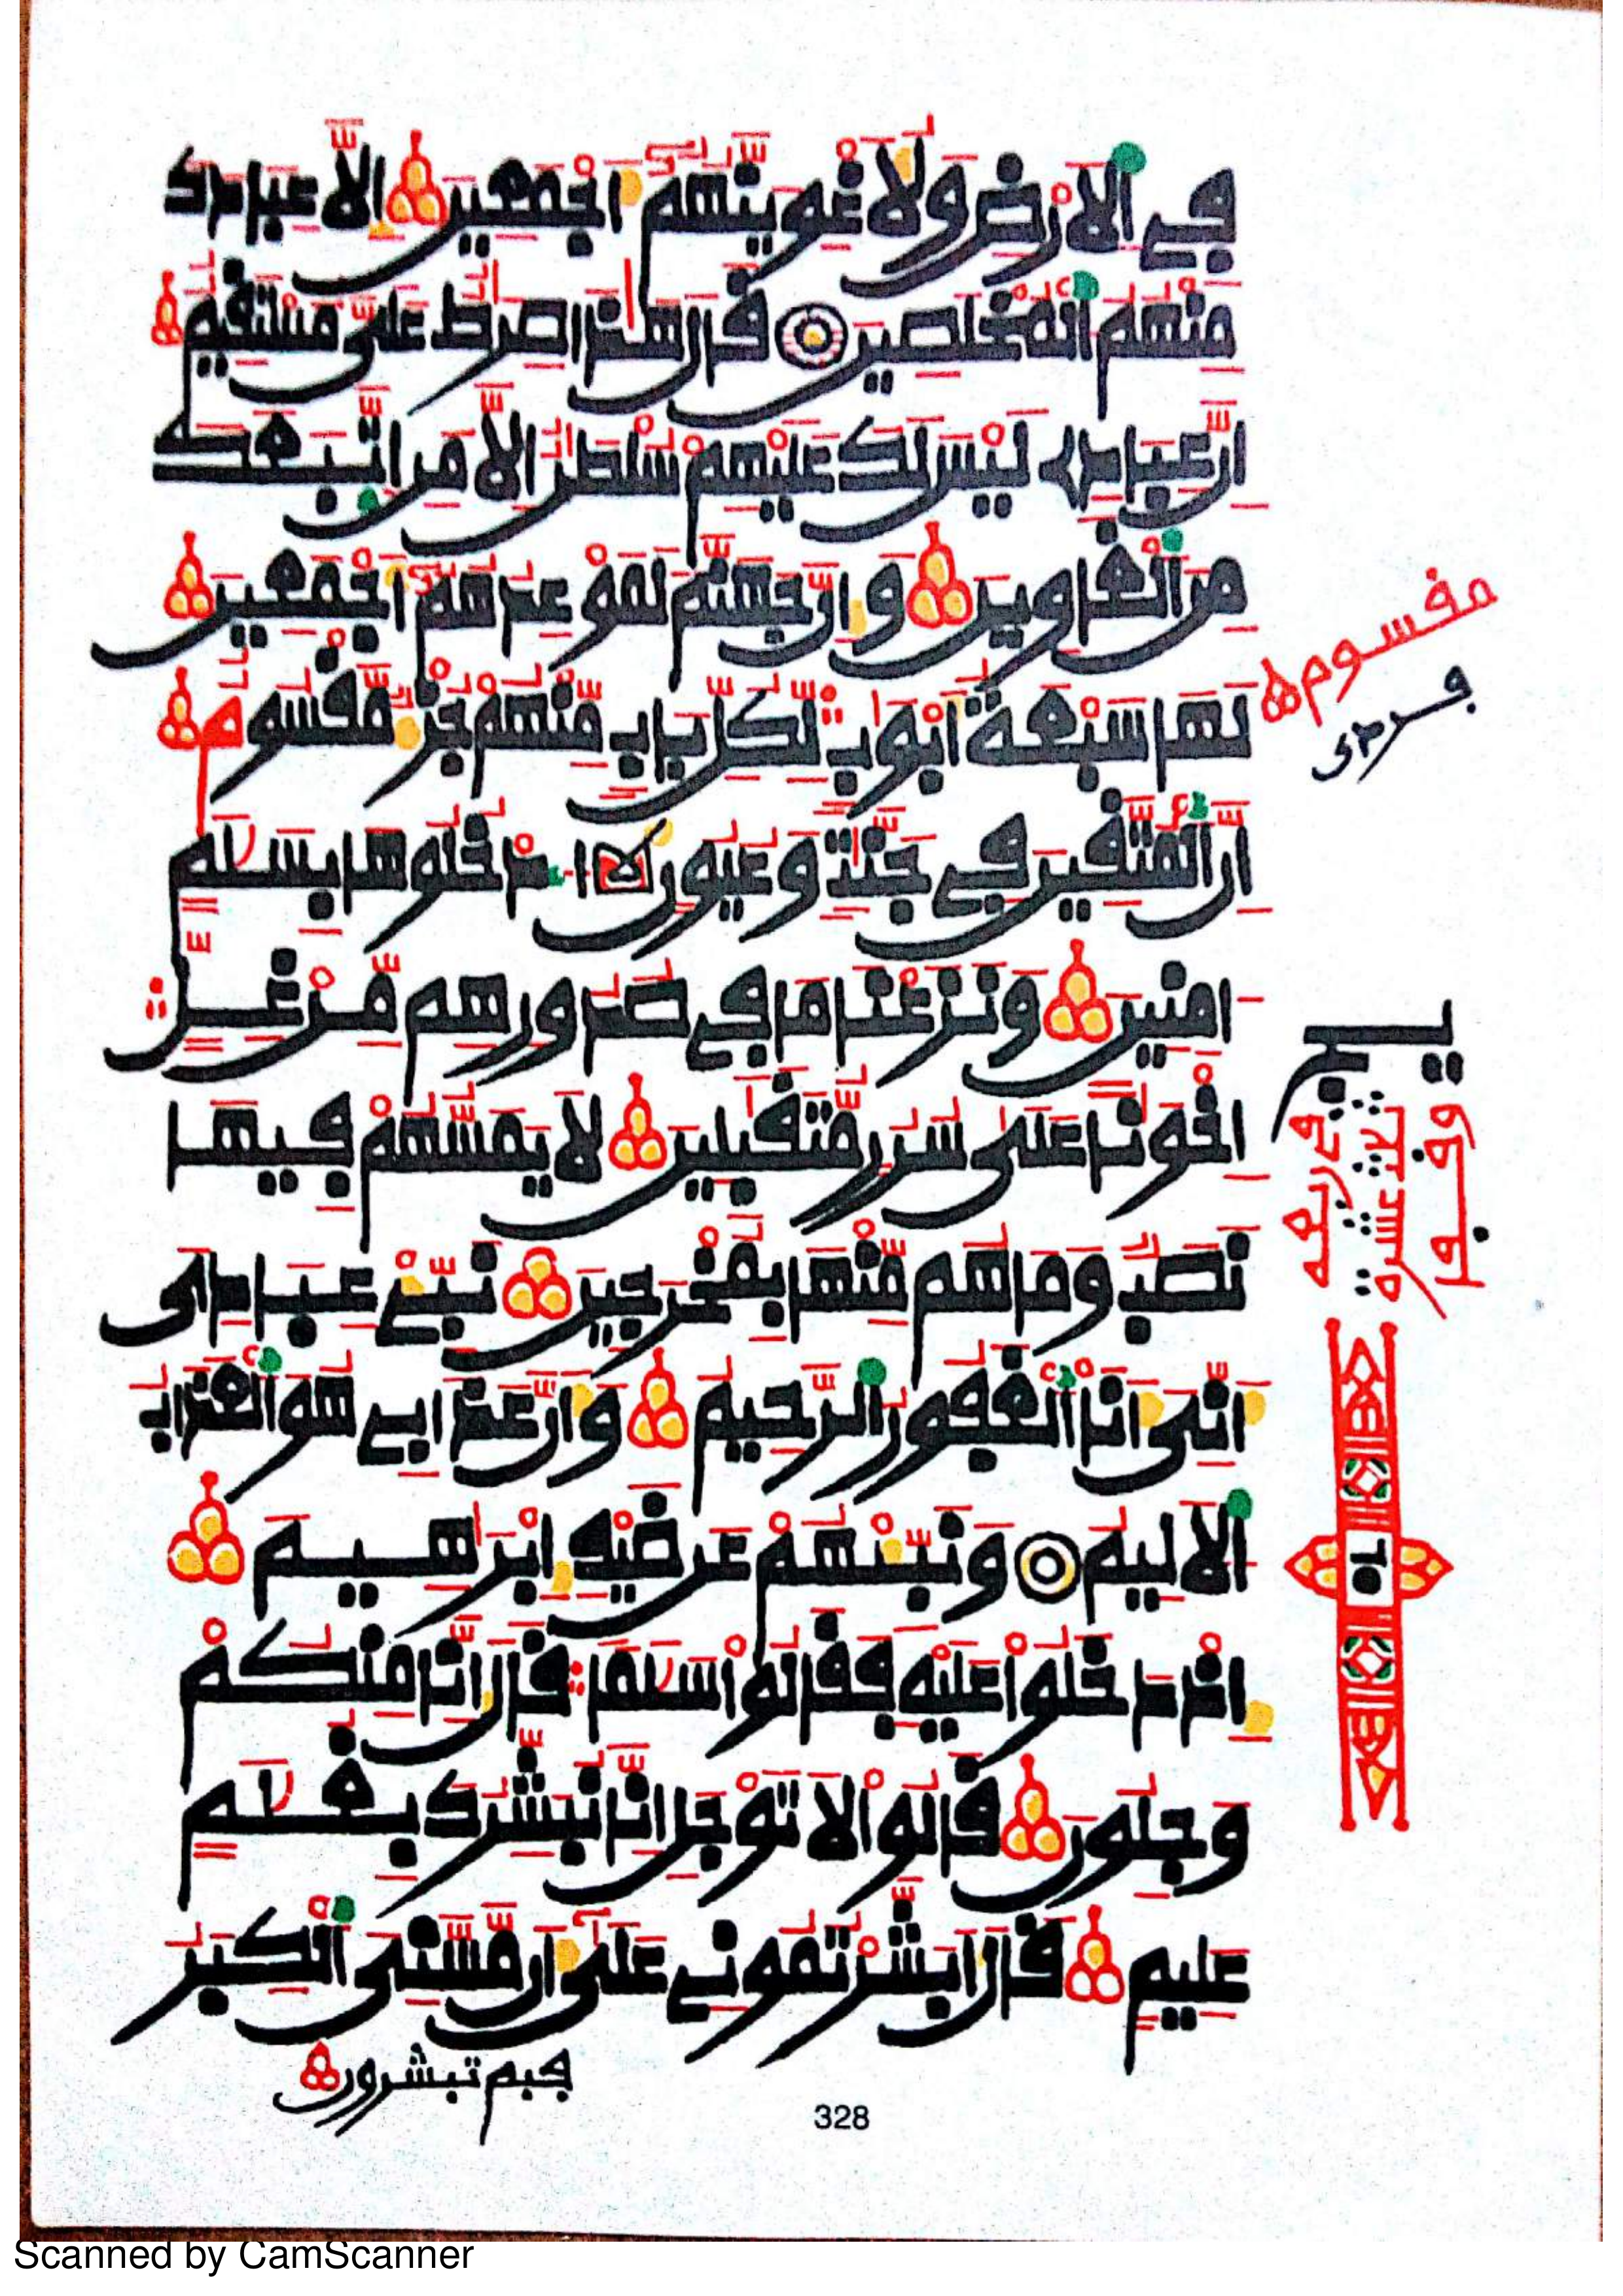 في الارض ولاغوينهم اجمعين الا عبادك
منهم المخلصين قال هذا صرط على مستقيم
ان عبادي ليس لك عليهم سلطن الا من اتبعك
من الغاوين وان جهنم لموعدهم اجمعين
لها سبعة ابوب لكل باب منهم جز مقسوم
ان المتقين في جنت وعيون ادخلوها بسلم
امنين ونزعنا ما في صدورهم من غل
اخونا على سرر متقبلين لا يمسهم فيها
نصب وما هم منها بمخرجين نبئ عبادي
اني انا الغفور الرحيم وان عذابي هو العذاب
الاليم ونبئهم عن ضيف ابرهيم
اذ دخلوا عليه فقالوا سلما قال انا منكم
وجلون قالوا لا توجل انا نبشرك بغلم
عليم قال ابشرتموني على ان مسني الكبر
فبم تبشرون
مقسوم
328
Scanned by CamScanner